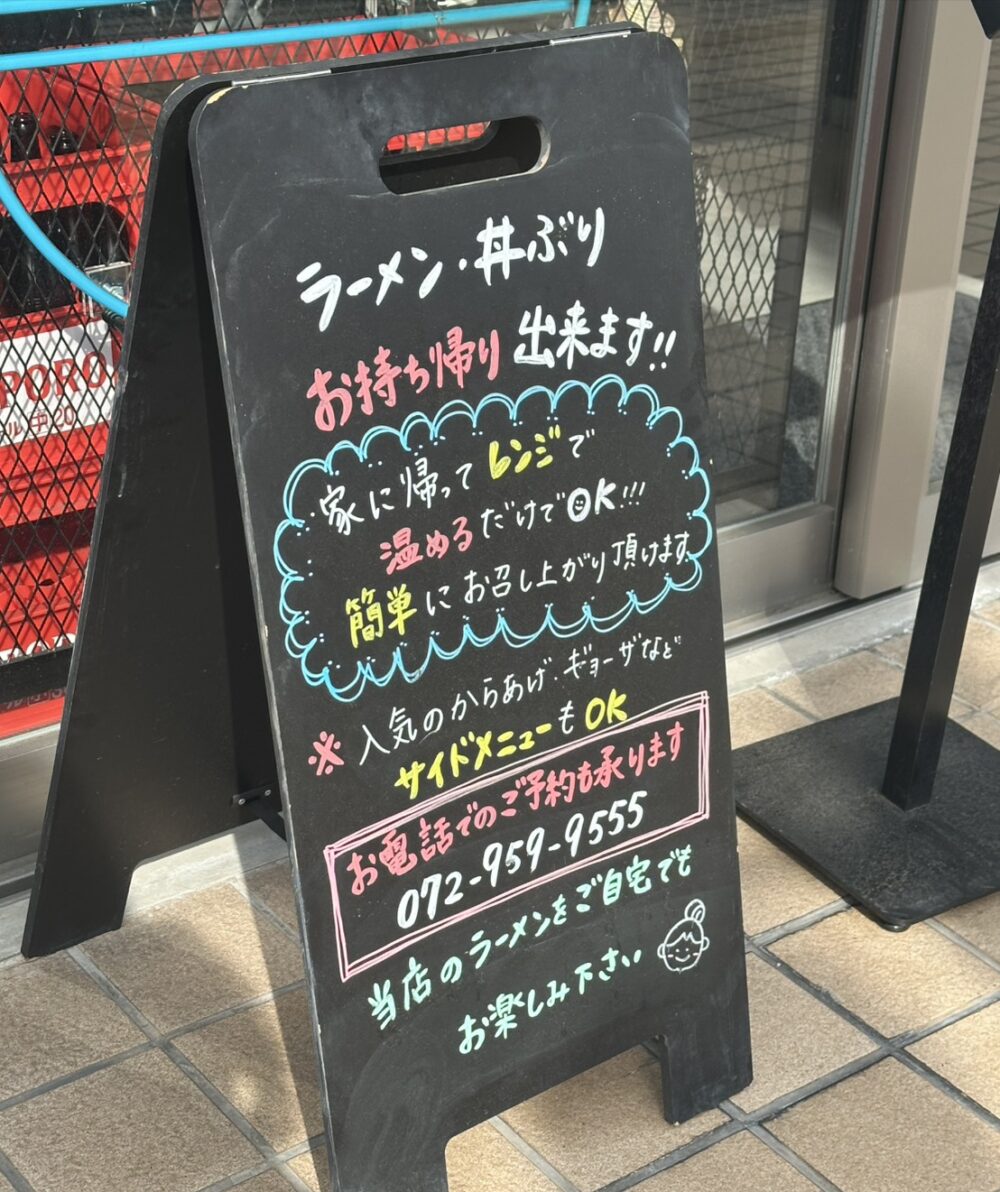 ラーメン・丼ぶり
お持ち帰り出来ます!!
家に帰ってレンジで
温めるだけでOK!!!
簡単にお召し上がり頂けます
※人気のからあげ・ギョーザなど
サイドメニューもOK
お電話でのご予約も承ります
072-959-9555
当店のラーメンをご自宅でも
お楽しみ下さい
PORO